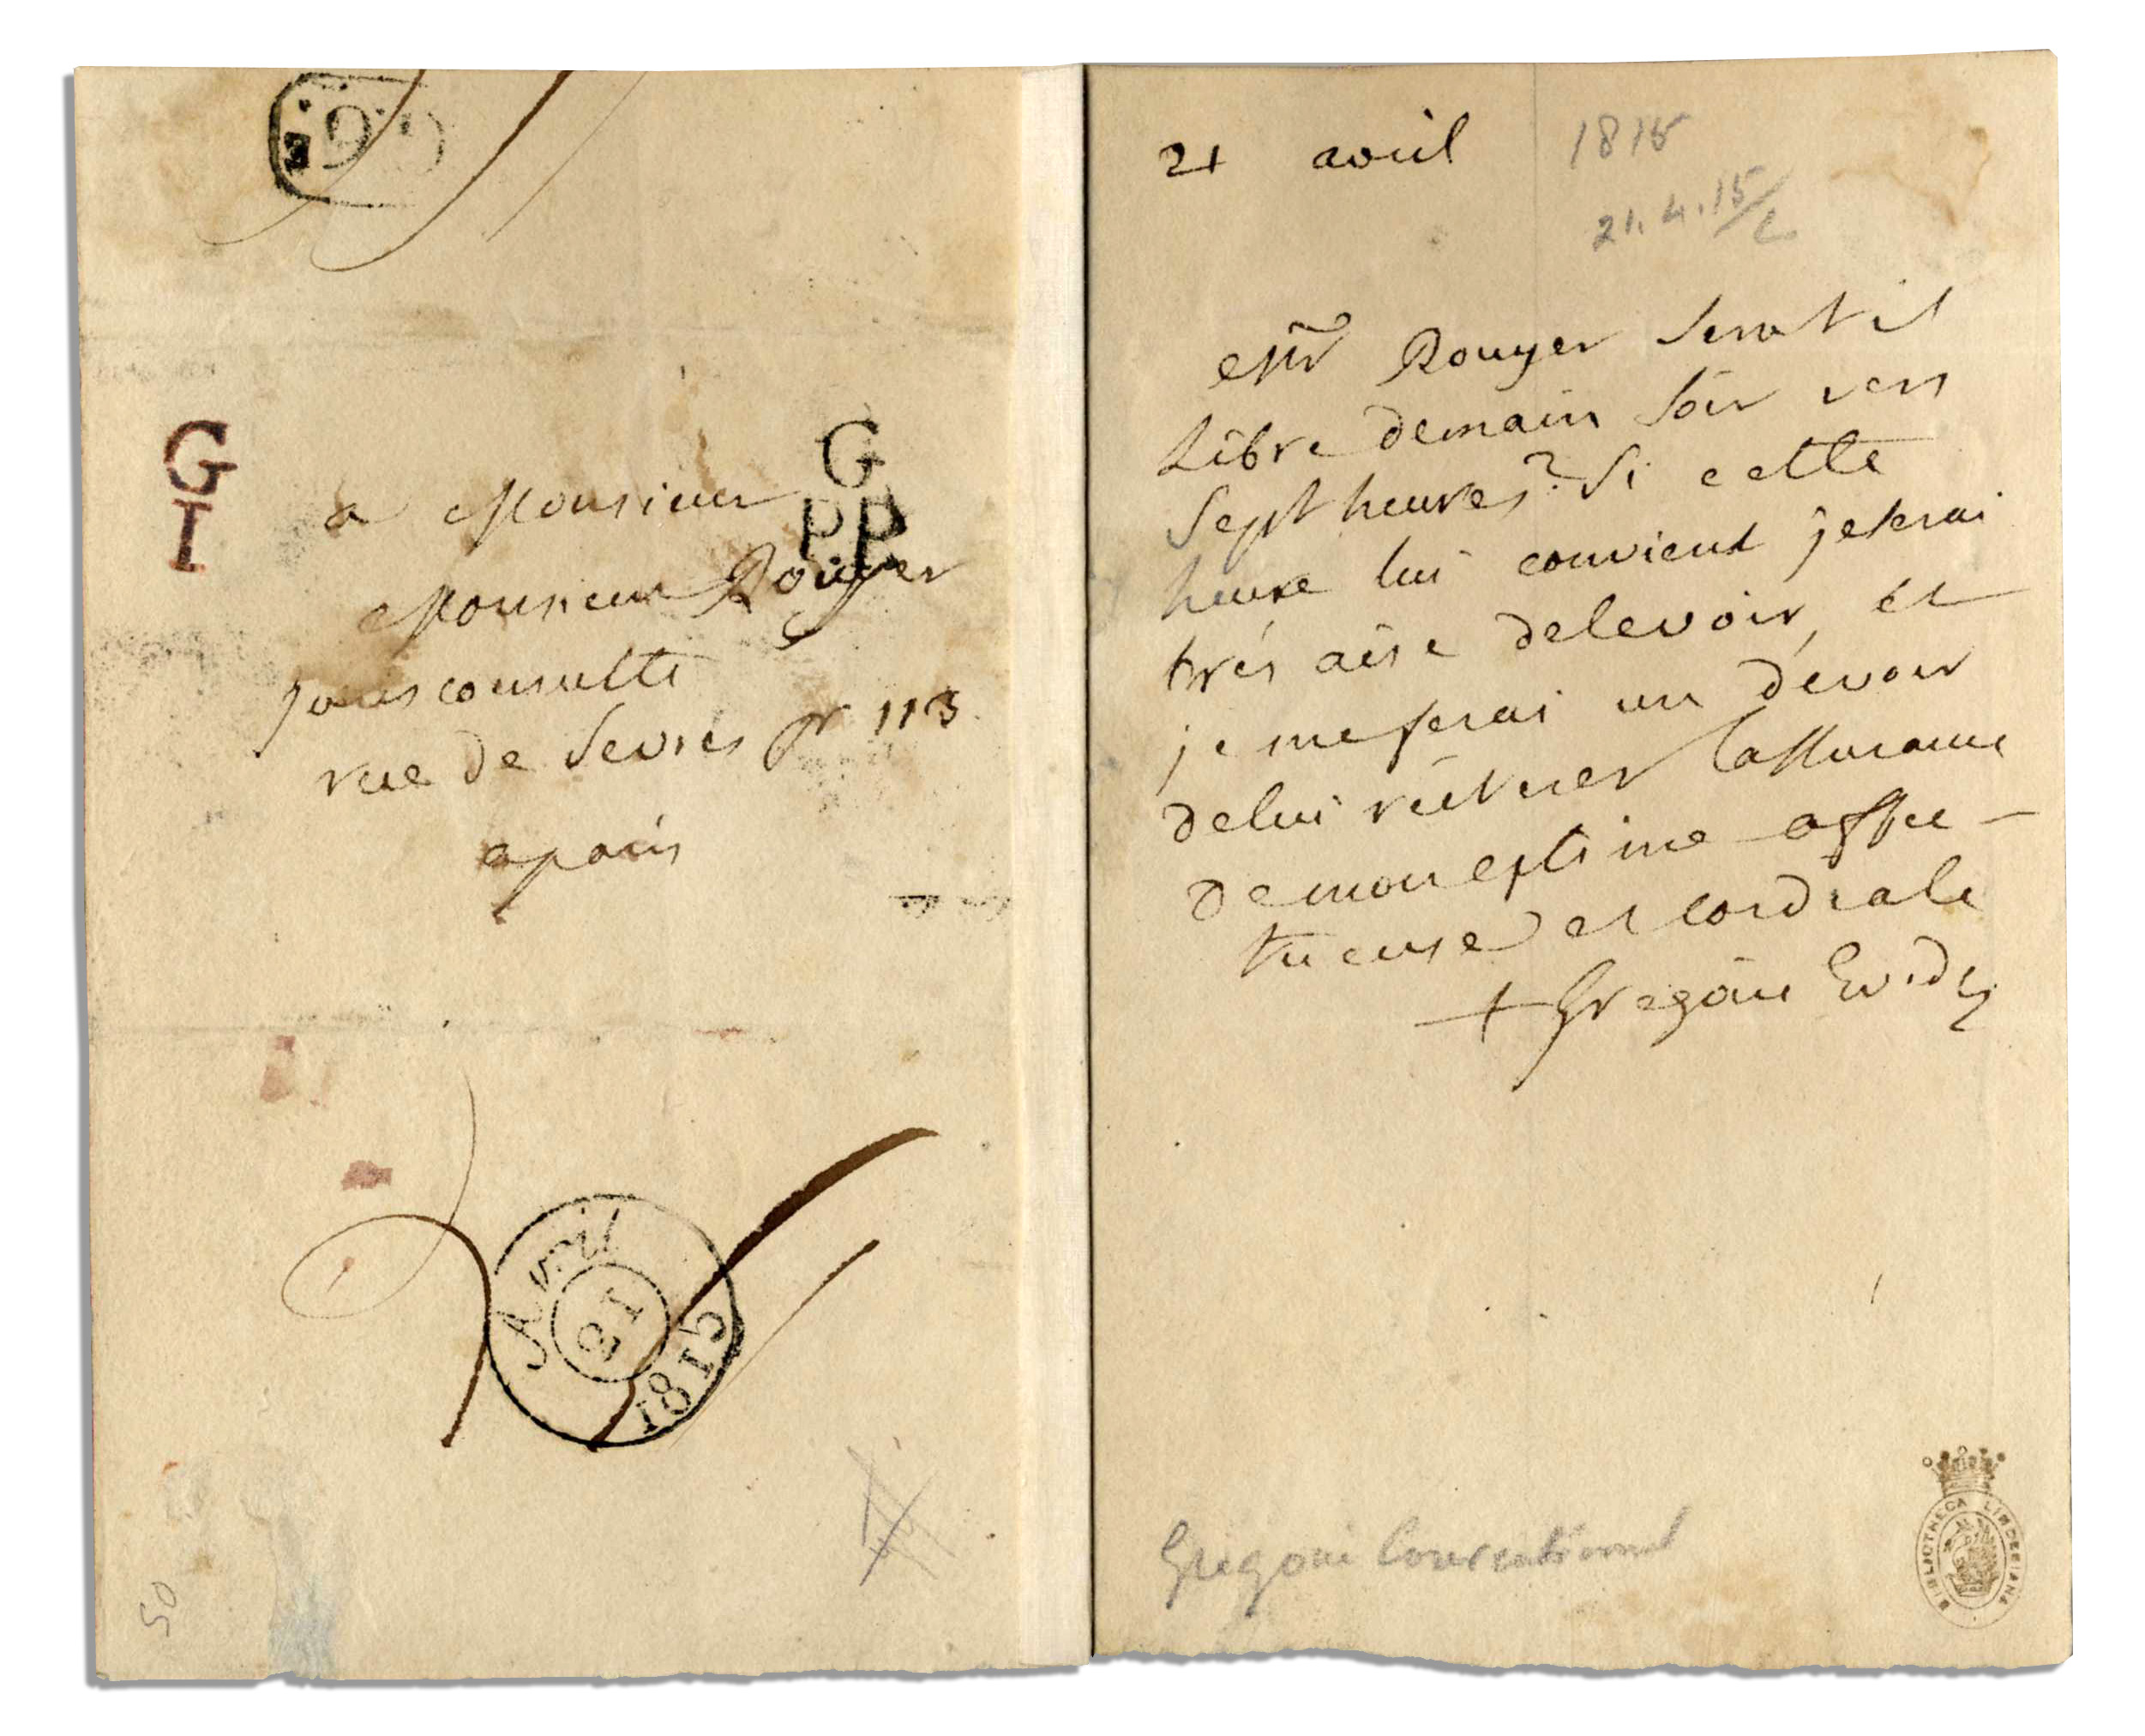 G
I
G
P.P.
a Monsieur
Monsieur Rouyer
jurisconsulte
rue de Sevres nr 113
a paris
Avril
21
1815
50
21 avril 1815
21.4.15
Mr Rouyer serat il
Libre demain soir vers
Sept heures? Si cette
heure lui convient je serai
trés aise de le voir, et
je me ferai un devoir
de lui réiterer l'assurance
de mon estime affec-
tueuse et cordiale
+ Gregoire Ev. d
Gregoire Conventionnel
BIBLIOTHECA LINDESIANA